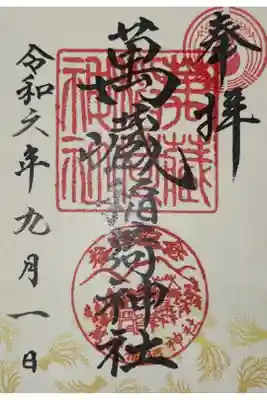 奉拝
萬蔵稲荷神社
令和六年九月一日